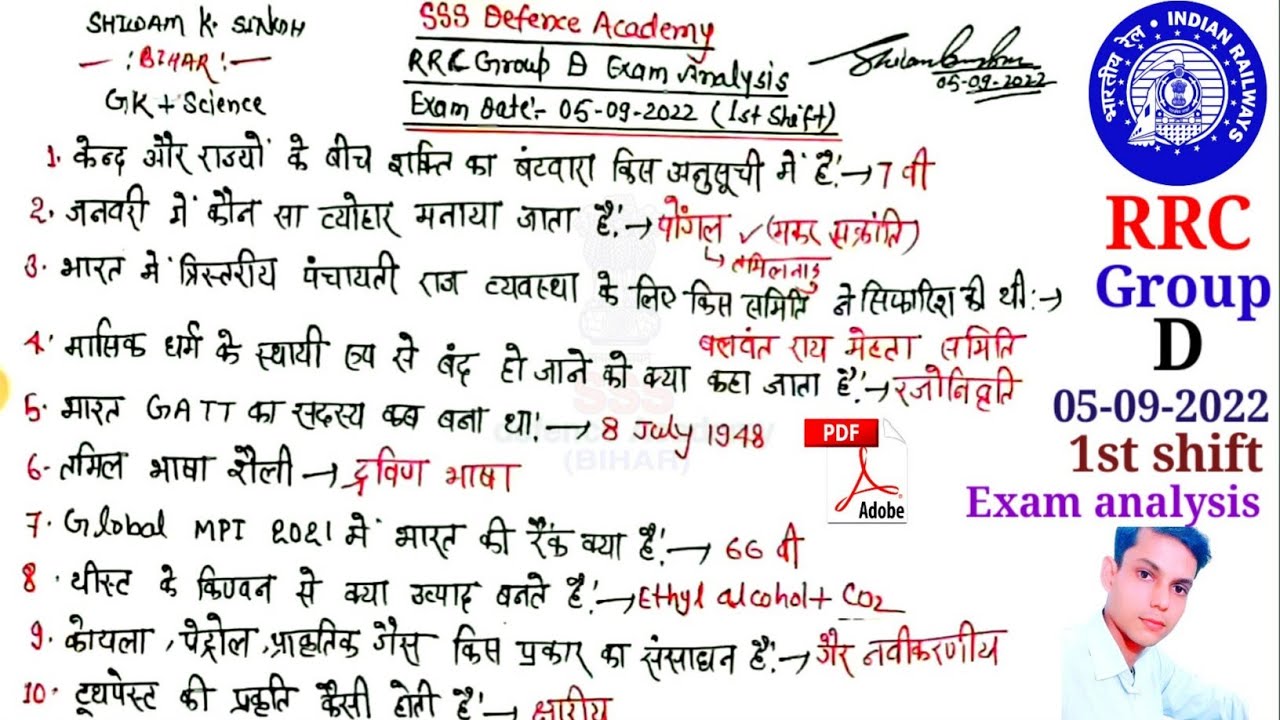 SHIWAM K. SINGH
BIHAR
GK + Science
SSS Defence Academy
RRC Group D Exam Analysis
Exam Date:- 05-09-2022 (1st Shift)
05-09-2022
1. केन्द और राज्यों के बीच शक्ति का बंटवारा किस अनुसूची में है! → 7 वी
2. जनवरी में कौन सा त्योहार मनाया जाता है! → पोंगल ✓ (मकर सक्रांति)
↳ तमिलनाडु
3. भारत में त्रिस्तरीय पंचायती राज व्यवस्था के लिए किस समिति ने सिफारिश की थी: →
बलवंत राय मेहता समिति
4. मासिक धर्म के स्थायी रूप से बंद हो जाने को क्या कहा जाता है! → रजोनिवृति
5. भारत GATT का सदस्य कब बना था! → 8 July 1948
6- तमिल भाषा शैली → द्रविण भाषा
7. Global MPI 2021 में भारत की रैंक क्या है! → 66 वी
8. यीस्ट के किण्वन से क्या उत्पाद बनते है! → Ethyl alcohol + CO2
9. कोयला, पेट्रोल, प्राकृतिक गैस किस प्रकार का संसाधन है! → गैर नवीकरणीय
10. टूथपेस्ट की प्रकृति कैसी होती है! → क्षारीय
SSS
(BIHAR)
PDF
Adobe
भारतीय रेल • INDIAN RAILWAYS
RRC
Group
D
05-09-2022
1st shift
Exam analysis